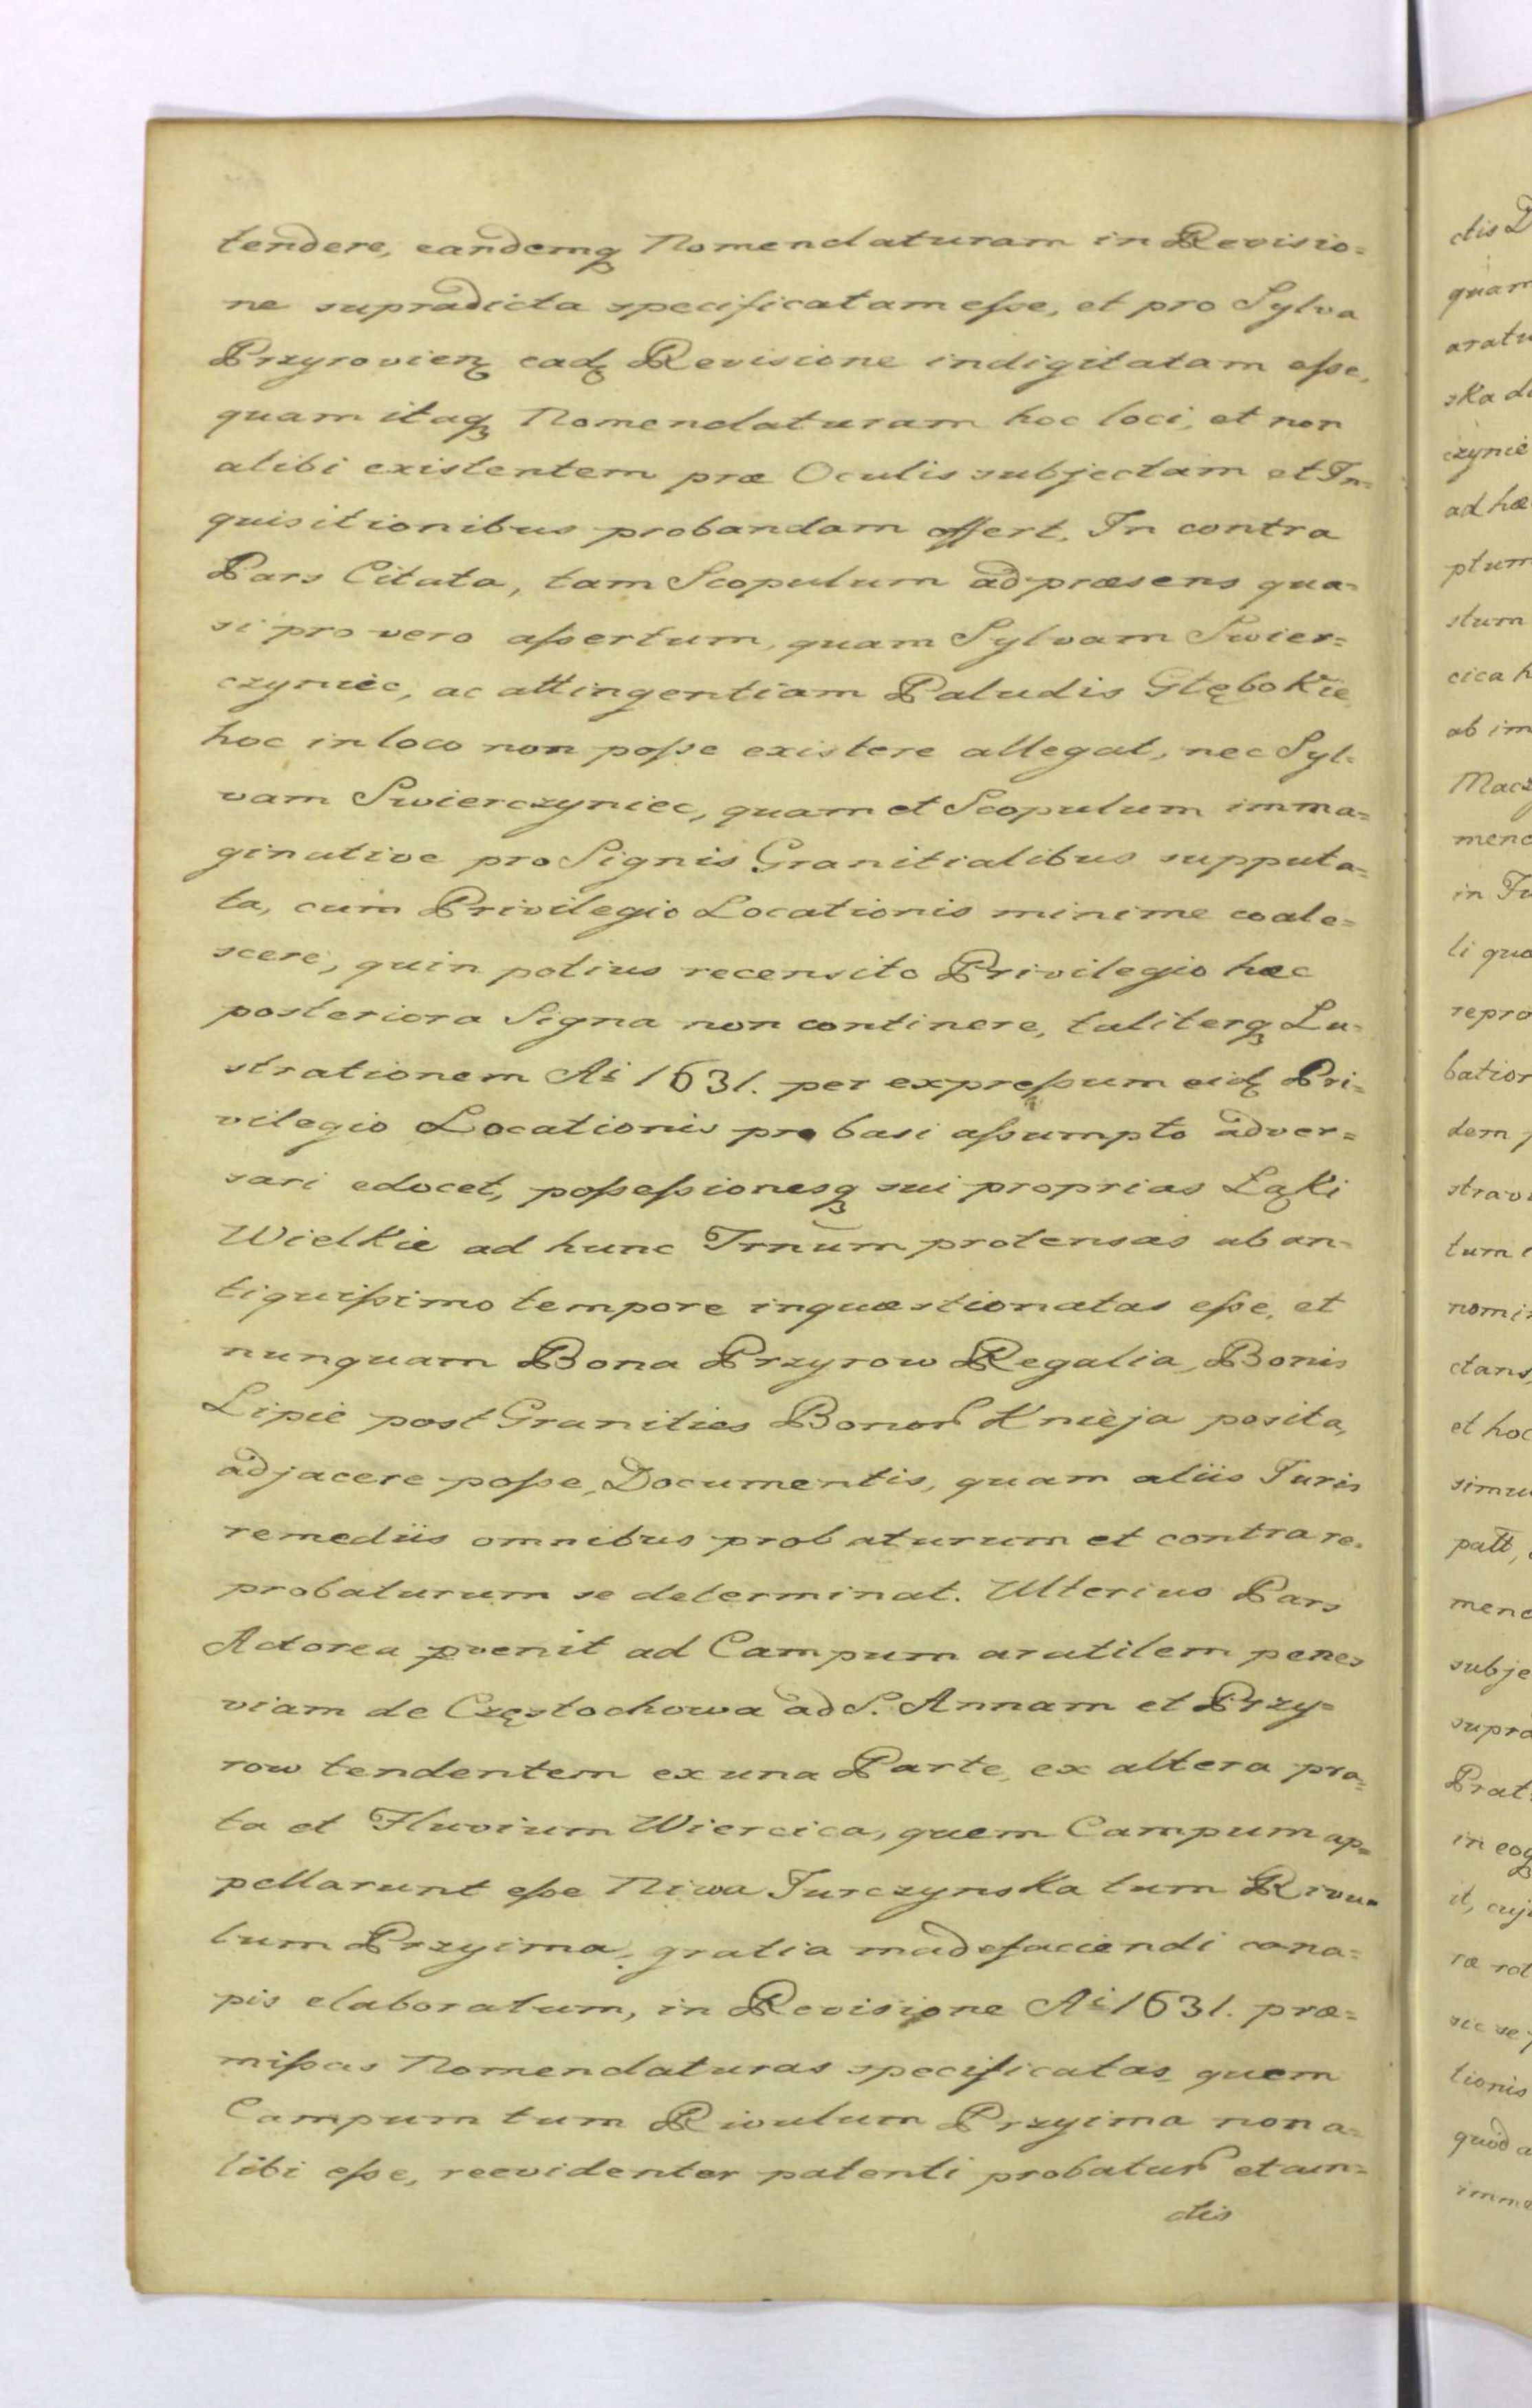 tendere, eandemq Nomenclaturam in Revisio=
ne supradicta specificatam eſse, et pro Sylva
Przyrovienz eadz Revisione indigitatam eſse,
quam itaq Nomenclaturam hoc loci, et non
alibi existentem præ Oculis subjectam et In=
quisitionibus probandam offert. In contra
Pars Citata, tam Scopulum ad præsens qua=
si pro vero aſsertum, quam Sylvam Swier=
czyniec, ac attingentiam Paludis Głębokie
hoc in loco non poſse existere allegat, nec Syl=
vam Swierczyniec, quam et Scopulum imma=
ginative pro Signis Granitialibus supputa=
ta, cum Privilegio Locationis minime coale=
scere, quin potius recensito Privilegio hæc
posteriora Signa non continere, taliterq Lu=
strationem Ai 1631. per expreſsum eidz Pri=
vilegio Locationis pro basi aſsumpto adver=
sari edocet, poſseſsionesq sui proprias Łąki
Wielkie ad hunc Trnum protensas ab an=
tiquiſsimo tempore inquæstionatas eſse, et
nunquam Bona Przyrow Regalia, Bonis
Lipie post Granities Bonor Knieja posita,
adjacere poſse, Documentis, quam aliis Juris
remediis omnibus probaturum et contra re=
probaturum se determinat. Ulterius Pars
Actorea pvenit ad Campum aratilem penes
viam de Częstochowa ad S. Annam et Przy=
row tendentem ex una Parte, ex altera pra=
ta et Fluvium Wiercica, quem Campum ap=
pellarunt eſse Niwa Jurczynska tum Rivu=
lum Przyima, gratia madefaciendi cana=
pis elaboratum, in Revisione Ai 1631. præ=
miſsas Nomenclaturas specificatas quem
Campum tum Rivulum Przyima non a=
libi eſse, reevidenter patenti probatur et aun=
ctis
ctis
quam
ska
czynie
ad hæ
ptum
stum
ab im
in
li
dem
et hoc
patt,
supra
in
it,
sic se
tionis
quod a